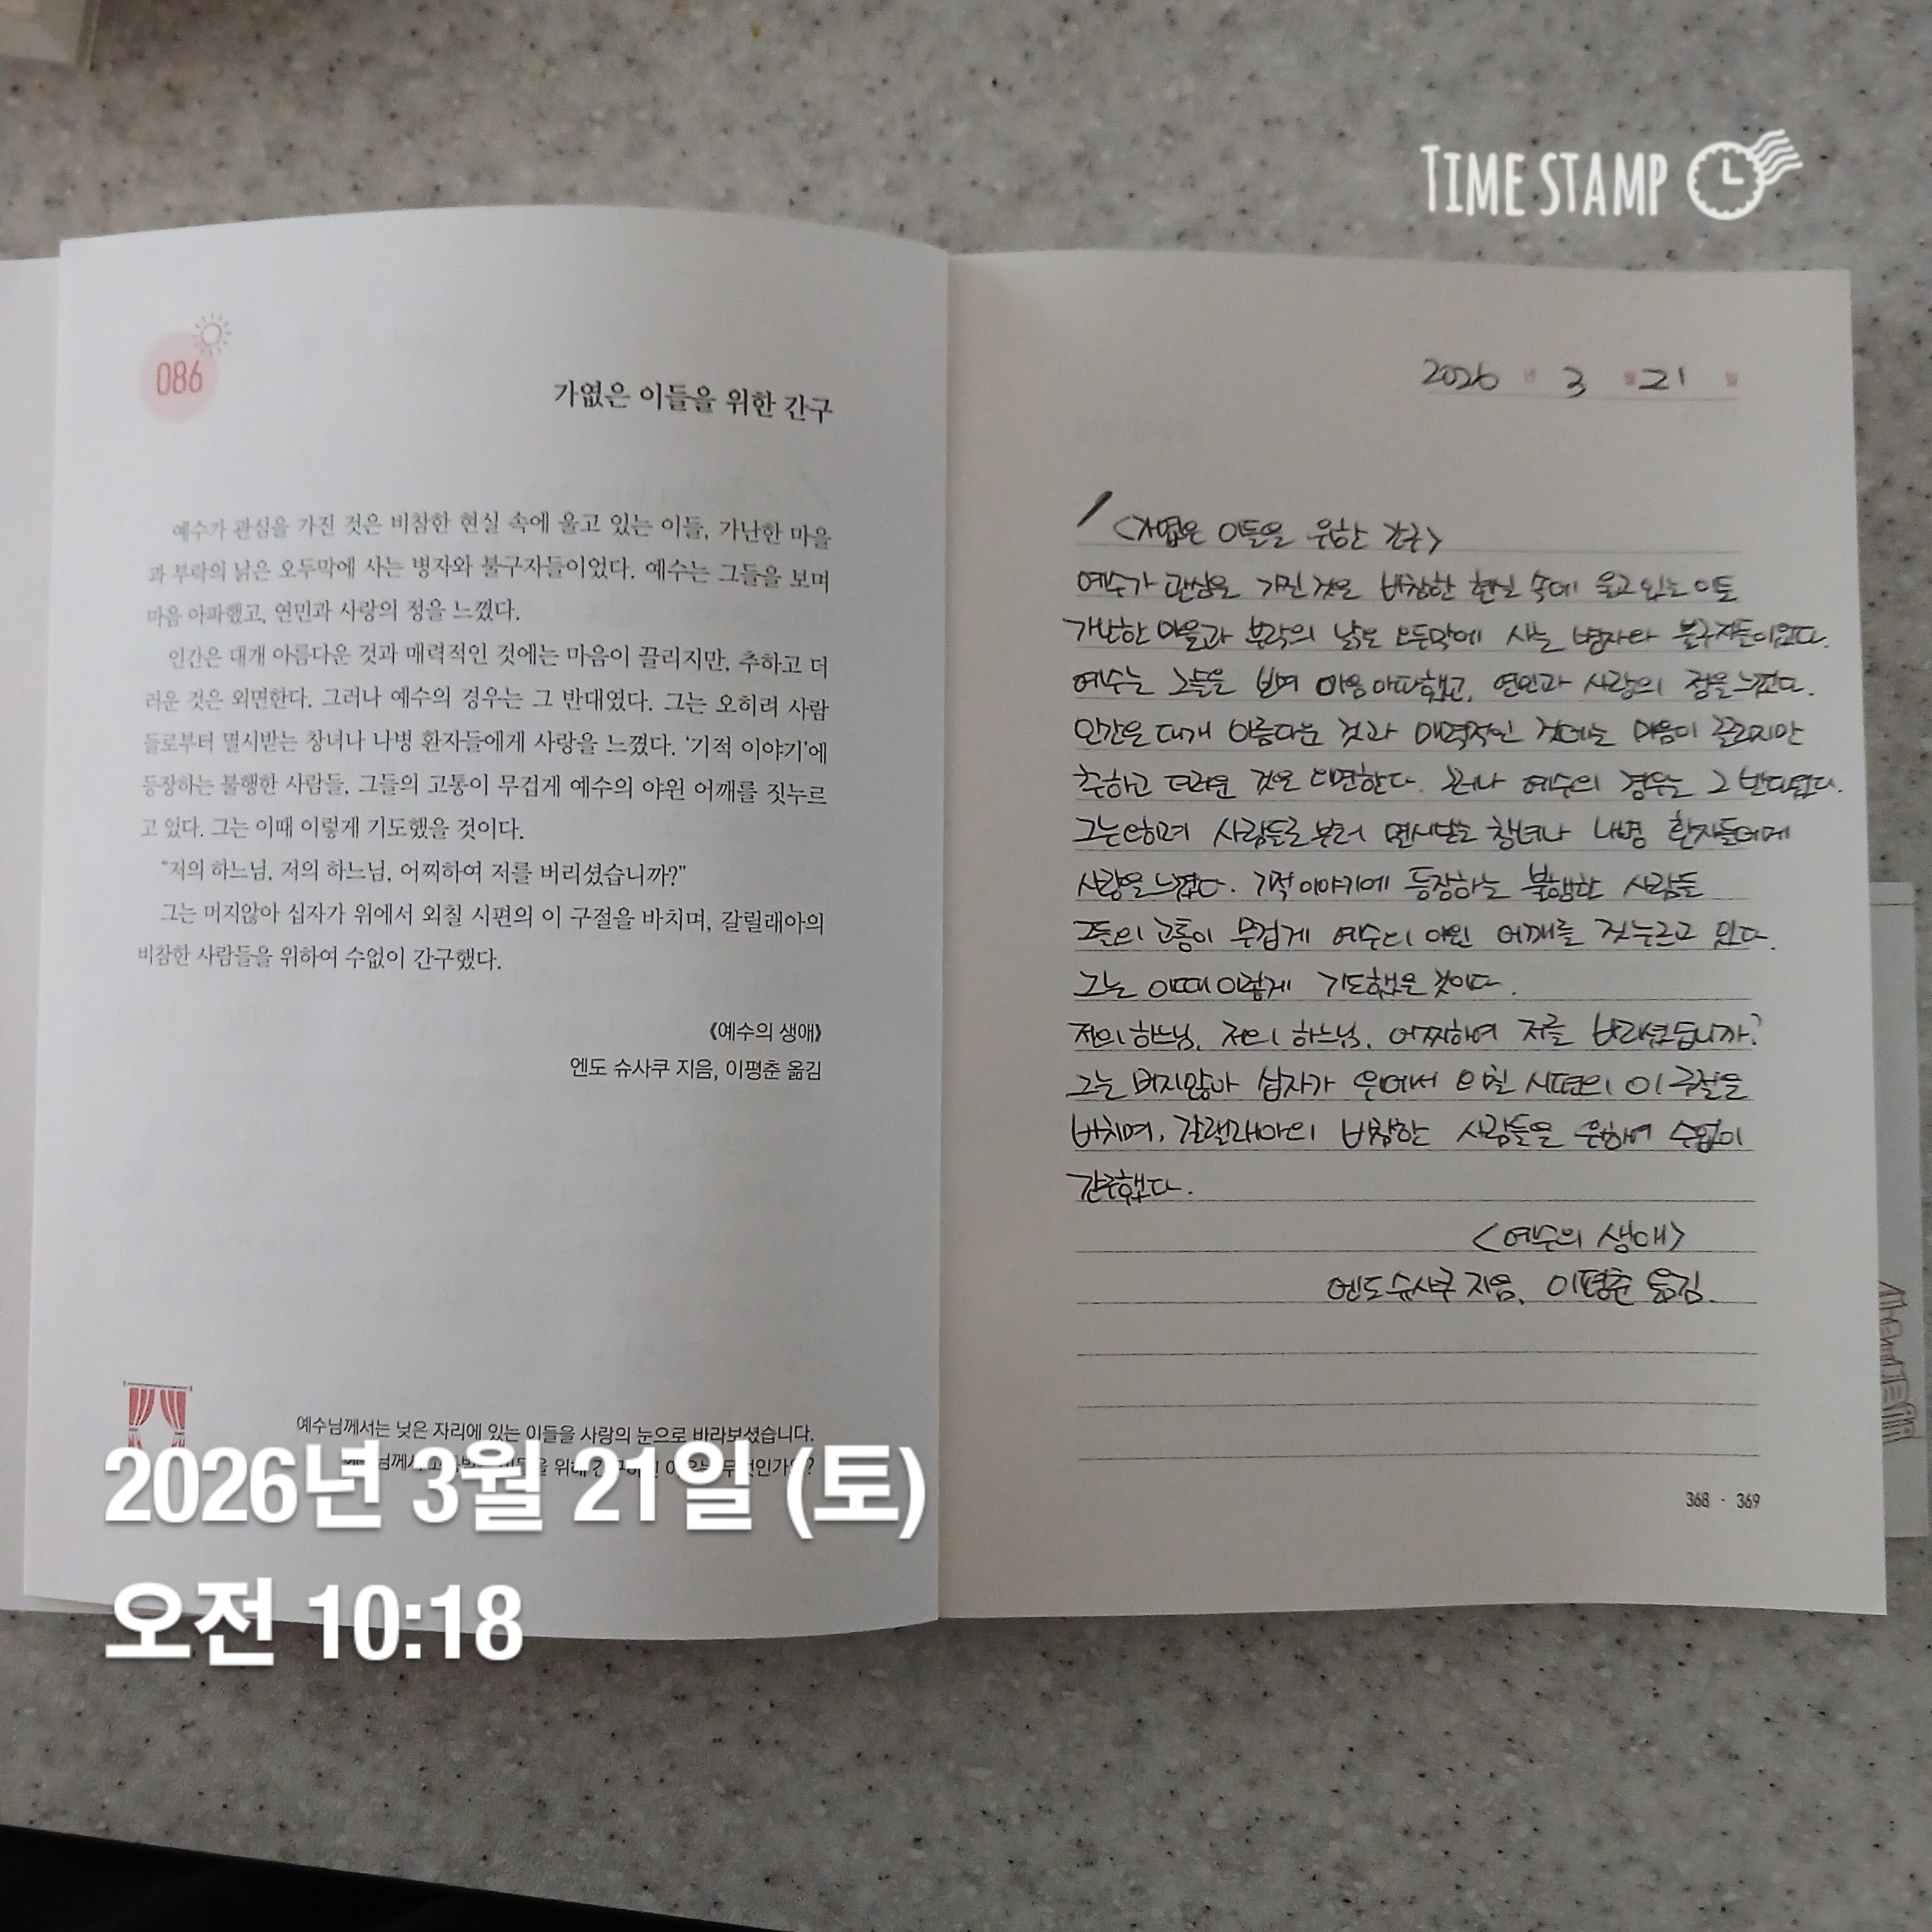 TIME STAMP
086
가엾은 이들을 위한 간구
예수가 관심을 가진 것은 비참한 현실 속에 울고 있는 이들, 가난한 마을
과 부락의 낡은 오두막에 사는 병자와 불구자들이었다. 예수는 그들을 보며
마음 아파했고, 연민과 사랑의 정을 느꼈다.
인간은 대개 아름다운 것과 매력적인 것에는 마음이 끌리지만, 추하고 더
러운 것은 외면한다. 그러나 예수의 경우는 그 반대였다. 그는 오히려 사람
들로부터 멸시받는 창녀나 나병 환자들에게 사랑을 느꼈다. ‘기적 이야기’에
등장하는 불행한 사람들, 그들의 고통이 무겁게 예수의 야윈 어깨를 짓누르
고 있다. 그는 이때 이렇게 기도했을 것이다.
“저의 하느님, 저의 하느님, 어찌하여 저를 버리셨습니까?”
그는 머지않아 십자가 위에서 외칠 시편의 이 구절을 바치며, 갈릴래아의
비참한 사람들을 위하여 수없이 간구했다.
《예수의 생애》
엔도 슈사쿠 지음, 이평춘 옮김
예수님께서는 낮은 자리에 있는 이들을 사랑의 눈으로 바라보셨습니다.
위해
2026년 3월 21일 (토)
오전 10:18
2026 년 3 월 21 일
<가엾은 이들을 위한 간구>
예수가 관심을 가진 것은 비참한 현실 속에 울고 있는 이들
가난한 마을과 부락의 낡은 오두막에 사는 병자와 불구자들이었다.
예수는 그들을 보며 마음 아파했고, 연민과 사랑의 정을 느꼈다.
인간은 대개 아름다운 것과 매력적인 것에는 마음이 끌리지만
추하고 더러운 것은 외면한다. 그러나 예수의 경우는 그 반대였다.
그는 오히려 사람들로 부터 멸시받는 창녀나 나병 환자들에게
사랑을 느꼈다. 기적 이야기에 등장하는 불행한 사람들
그들의 고통이 무겁게 예수의 야윈 어깨를 짓누르고 있다.
그는 이때 이렇게 기도했을 것이다.
저의 하느님, 저의 하느님, 어찌하여 저를 버리셨습니까?
그는 머지않아 십자가 위에서 외칠 시편의 이 구절을
바치며, 갈릴래아의 비참한 사람들을 위하여 수없이
간구했다.
<예수의 생애>
엔도 슈사쿠 지음, 이평춘 옮김.
368 · 369